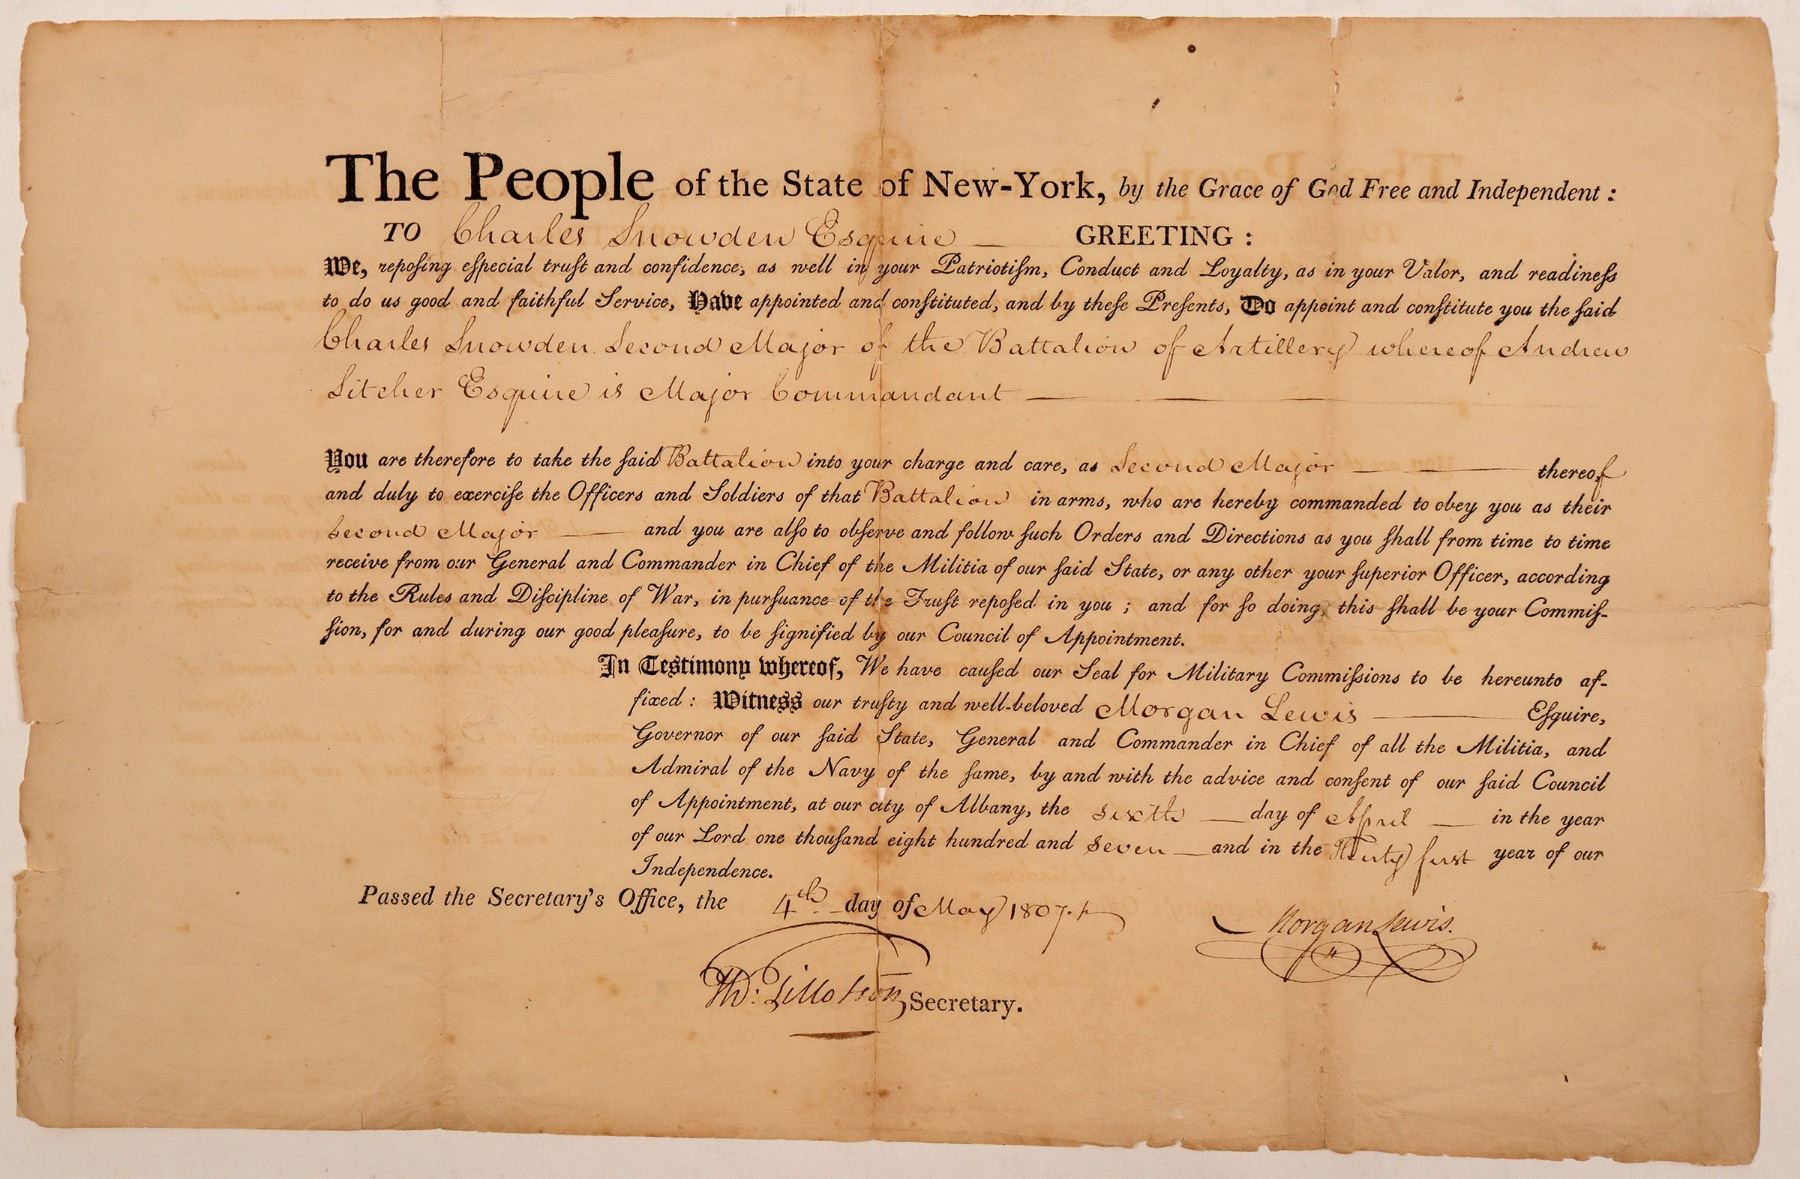 The People of the State of New-York, by the Grace of God Free and Independent :
TO Charles Snowden Esquire — GREETING :
We, repoſing eſpecial truſt and confidence, as well in your Patriotiſm, Conduct and Loyalty, as in your Valor, and readineſs
to do us good and faithful Service, Have appointed and conſtituted, and by theſe Preſents, Do appoint and conſtitute you the ſaid
Charles Snowden Second Major of the Battalion of Artillery whereof Andrew
Sitcher Esquire is Major Commandant —
You are thereſore to take the ſaid Battalion into your charge and care, as Second Major — — thereof
and duly to exerciſe the Officers and Soldiers of that Battalion in arms, who are hereby commanded to obey you as their
Second Major — and you are alſo to obſerve and follow ſuch Orders and Directions as you ſhall from time to time
receive from our General and Commander in Chief of the Militia of our ſaid State, or any other your ſuperior Officer, according
to the Rules and Diſcipline of War, in purſuance of the Truſt repoſed in you ; and for so doing, this ſhall be your Commiſ-
ſion, for and during our good pleaſure, to be ſignified by our Council of Appointment.
In Testimony whereof, We have cauſed our Seal for Military Commiſsions to be hereunto af-
fixed : Witness our truſty and well-beloved Morgan Lewis — Eſquire,
Governor of our ſaid State, General and Commander in Chief of all the Militia, and
Admiral of the Navy of the ſame, by and with the advice and conſent of our ſaid Council
of Appointment, at our city of Albany, the Sixth — day of April — in the year
of our Lord one thouſand eight hundred and Seven — and in the Thirty first year of our
Independence.
Passed the Secretary's Office, the 4th — day of May 1807.
Morgan Lewis.
Th: Tillotson Secretary.